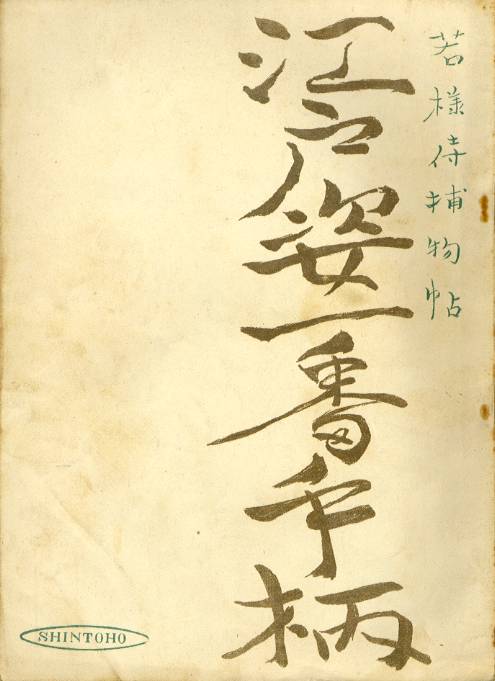 若様侍捕物帖
江戸姿一番手柄
SHINTOHO